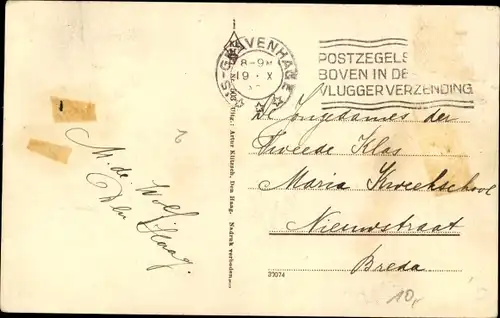 'S-GRAVENHAGE
8-9
19 X
POSTZEGELS
BOVEN IN DE
VLUGGER VERZENDING
Uitg.: Artur Klitzsch, Den Haag. Nadruk verboden
De Jongedames der
Tweede Klas
Maria Kweekschool
Nieuwstraat
Breda
M. de Wolf
Den Haag.
23074
10,